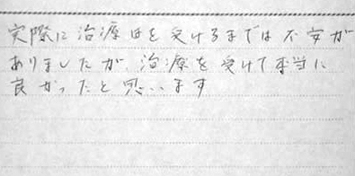 実際に治療を受けるまでは不安が
ありましたが、治療を受けて本当に
良かったと思います